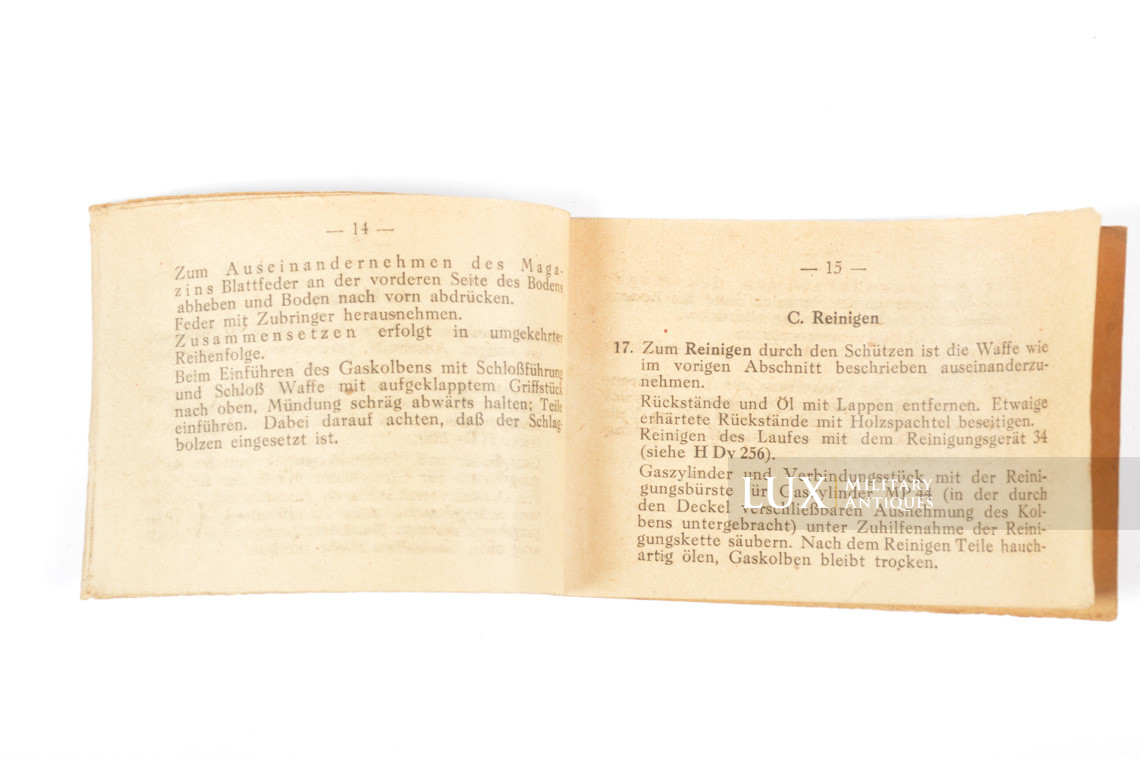 — 14 —
Zum Auseinandernehmen des Maga-
zins Blattfeder an der vorderen Seite des Bodens
abheben und Boden nach vorn abdrücken.
Feder mit Zubringer herausnehmen.
Zusammensetzen erfolgt in umgekehrter
Reihenfolge.
Beim Einführen des Gaskolbens mit Schloßführung
und Schloß Waffe mit aufgeklapptem Griffstück
nach oben, Mündung schräg abwärts halten; Teile
einführen. Dabei darauf achten, daß der Schlag-
bolzen eingesetzt ist.
— 15 —
C. Reinigen
17. Zum Reinigen durch den Schützen ist die Waffe wie
im vorigen Abschnitt beschrieben auseinanderzu-
nehmen.
Rückstände und Öl mit Lappen entfernen. Etwaige
erhärtete Rückstände mit Holzspachtel beseitigen.
Reinigen des Laufes mit dem Reinigungsgerät 34
(siehe H Dv 256).
Gaszylinder und Verbindungsstück mit der Reini-
gungsbürste für Gaszylinder MP 44 (in der durch
den Deckel verschließbaren Ausnehmung des Kol-
bens untergebracht) unter Zuhilfenahme der Reini-
gungskette säubern. Nach dem Reinigen Teile hauch-
artig ölen, Gaskolben bleibt trocken.
LUX MILITARY
ANTIQUES